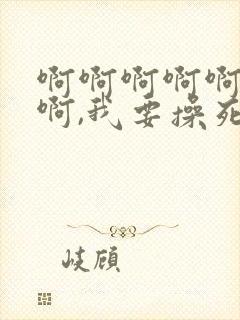 啊啊啊啊啊
啊,我要操死
岐顾